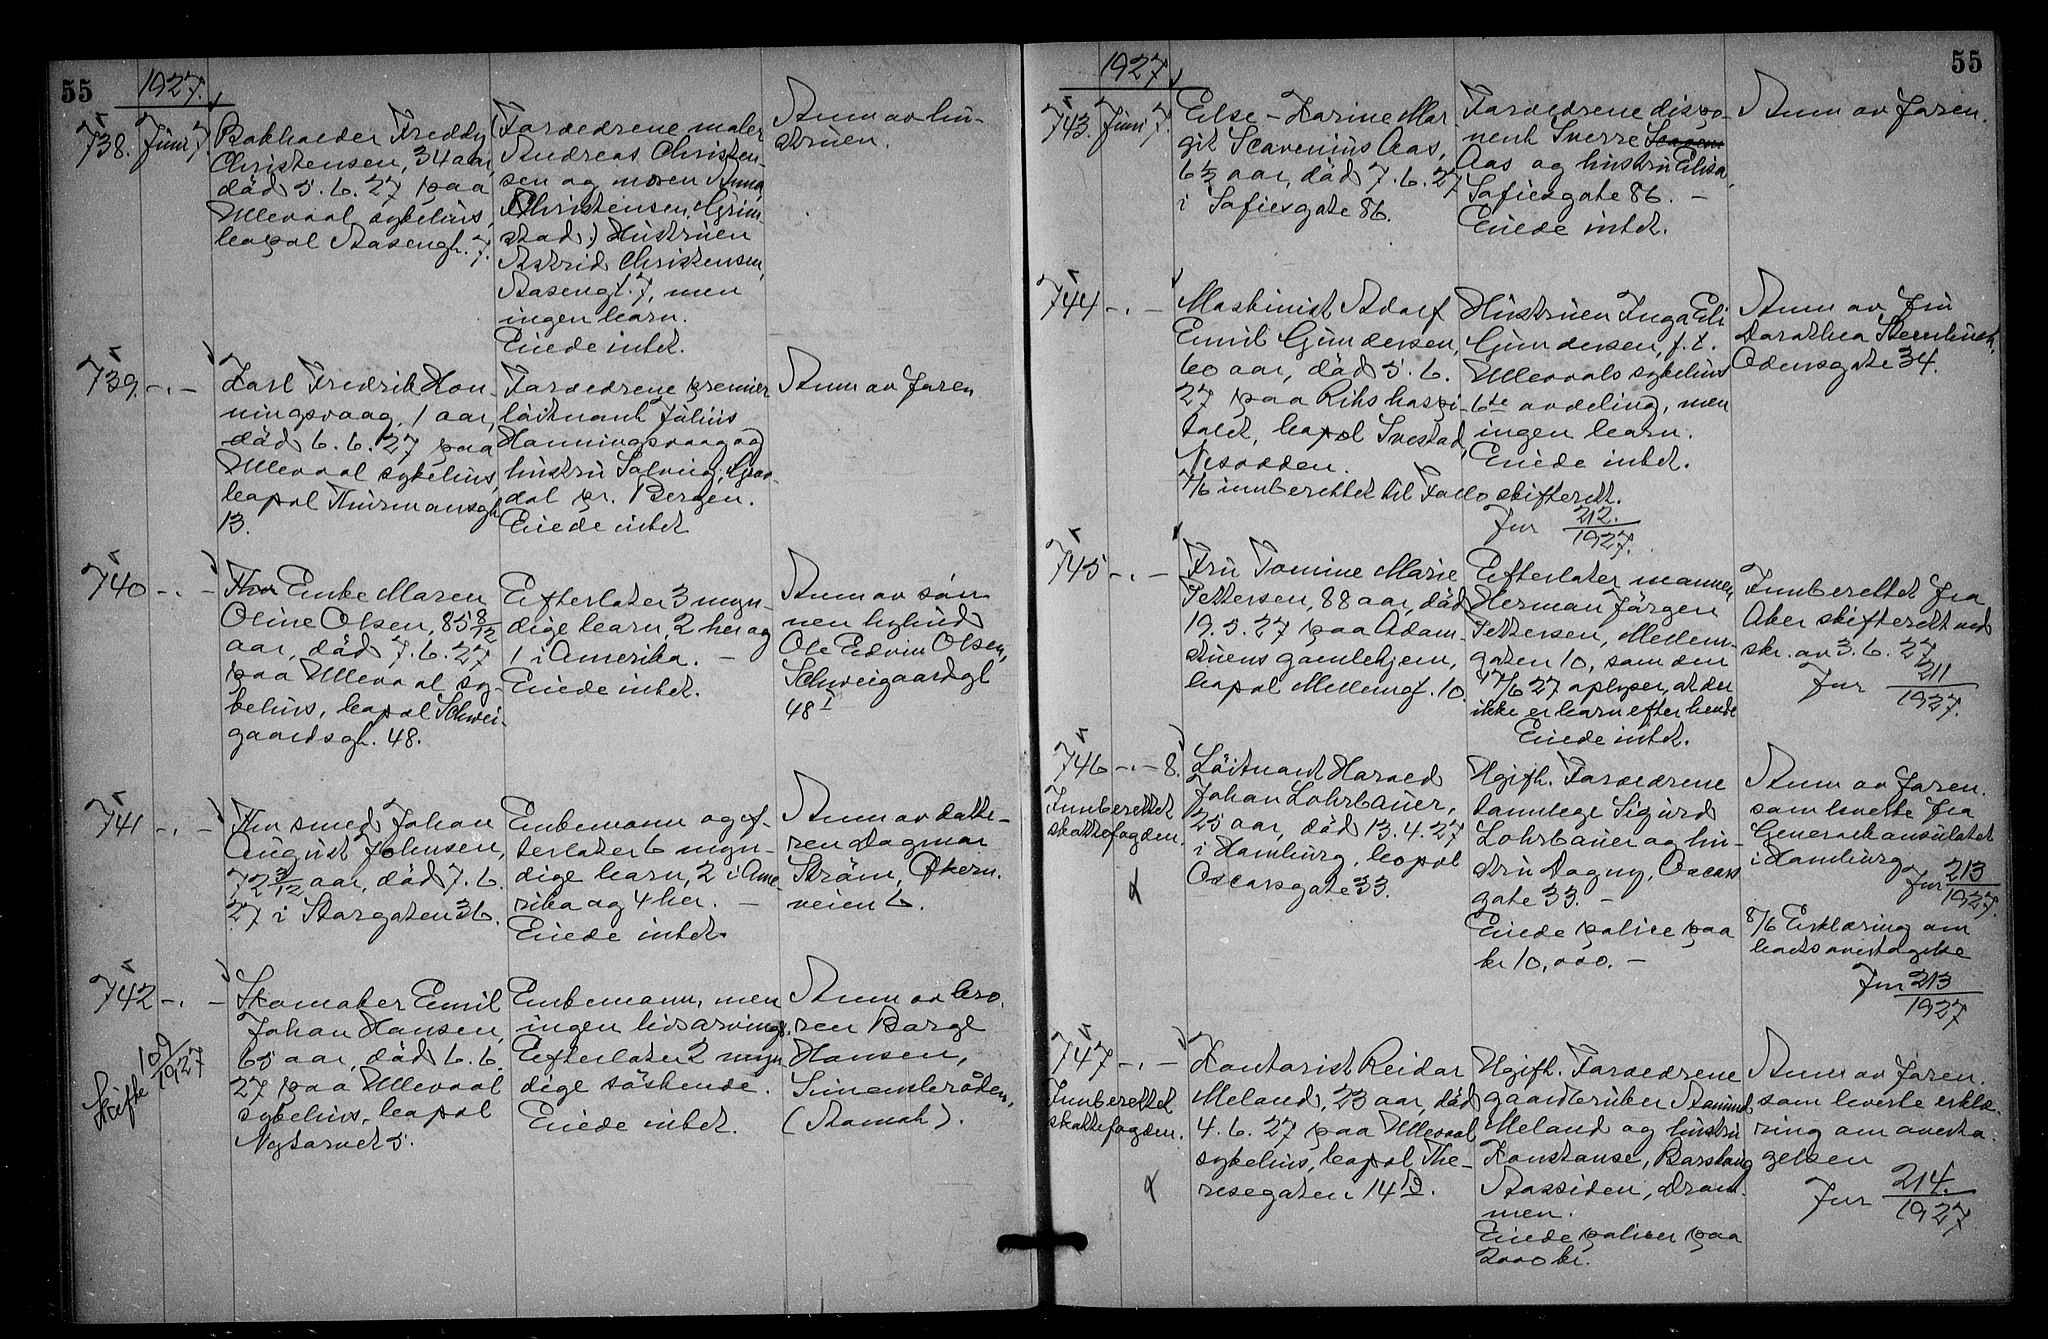 55
1927.
738. Juni 7.
Bokholder Freddy
Christensen, 34 aar,
död 5. 6. 27 paa
Ullevaal sykehus,
bopæl Aasengt. 7.
Forældrene maler
Andreas Christen-
sen og moren Anna
Christensen, Grim-
stad.) Hustruen
Astrid Christensen,
Aasengt. 7, men
ingen barn.
Eiede intet.
Anm av hu-
struen.
739. -.-
Karl Fredrik Hon-
ningsvaag, 1 aar,
död 6. 6. 27 paa
Ullevaal sykehus,
bopæl Thurmansgt
13.
Forældrene premier
löitnant Julius
Honningsvaag og
hustru Solveig,
dal pr. Bergen.
Eiede intet
Anm av faren
740 -.-
Enke Maren
Oline Olsen, 85 8/12
aar, död 7. 6. 27
paa Ullevaal sy-
kehus, bopæl Schwei-
gaardsgt. 48.
Efterlater 3 myn-
dige barn, 2 her og
1 i Amerika. -
Eiede intet.
Anm av søn
nen
Ole Edvin Olsen,
Schweigaardsgt
48 I
741 -.-
Fhv smed Johan
August Johnsen,
72 3/12 aar, död 7. 6.
27 i Storgaten 36.
Enkemann og ef-
terlater 6 myn-
dige barn, 2 i Ame-
rika og 4 her. -
Eiede intet.
Anm av datte-
ren Dagmar
Ström, Økern.
veien 6.
742 -.-
Skifte 109/1927
Skomaker Emil
Johan Hansen,
65 aar, död 6. 6.
27 paa Ullevaal
sykehus, bopæl
Nytorvet 5.
Enkemann, men
ingen livsarving.
Efterlater 2 myn
dige söskende.
Eiede intet.
Anm av bro.
ren Borge
Hansen,
Simensbråten,
(Stamah).
55
1927.
743. Juni 7.
Else-Karine Mar
git Scavenius Aas,
6 1/2 aar, död 7. 6. 27
i Sofiesgate 86.
Forældrene dispo-
nent Sverre
Aas og hustru Elisa,
Sofiesgate 86. -
Eiede intet.
Anm av faren.
744 -.-
Maskinist Adolf
Emil Gundersen,
60 aar, död 5. 6.
27 paa Rikshospi-
talet, bopæl Svestad,
Nesodden.
7/6 innberettet til Follo skifterett.
Jnr 212./1927.
Hustruen Inga Eli
Gundersen, f. t.
Ullevaals sykehus
6te avdeling, men
ingen barn.
Eiede intet.
Anm av fru
Dorothea Steenbuch,
Odinsgate 34.
745 -.-
Fru Tomine Marie
Pettersen, 88 aar, död
19. 5. 27 paa Adam-
stuens gamlehjem,
bopæl Mellemgt. 10.
Efterlater mannen
Herman Jörgen
Pettersen, Mellem-
gaten 10, som den
17/6 27 oplyser, at der
ikke er barn efter hende
Eiede intet.
Innberettet fra
Aker skifterett ved
skr. av 3. 6. 27
Jnr 211/1927.
746 -.- 8.
Innberettet
skattefogden.
Löitnant Harald
Johan Lohrbauer,
25 aar, död 13. 4. 27
i Hamburg, bopæl
Oscarsgate 33.
Ugift. Forældrene
tannlege Sigurd
Lohrbauer og hu-
stru Dagny, Oscars
gate 33. -
Eiede police paa
kr 10,000. -
Anm av faren.
som leverte fra
Generalkonsulatet
i Hamburg
Jnr 213/1927.
8/6 Erklæring om
boets overtagelse
Jnr 213/1927
747 -.-
Innberettet
skattefogden.
Kontorist Reidar
Meland, 23 aar, död
4. 6. 27 paa Ullevaal
sykehus, bopæl The-
resegaten 14 b.
Ugift. Forældrene
gaardbruker Aamund
Meland og hustru
Konstanse, Borshaug
Aassiden, Dram-
men.
Eiede poliser paa
2000 kr.
Anm av faren.
som leverte erklæ-
ring om overta-
gelsen
Jnr 214./1927